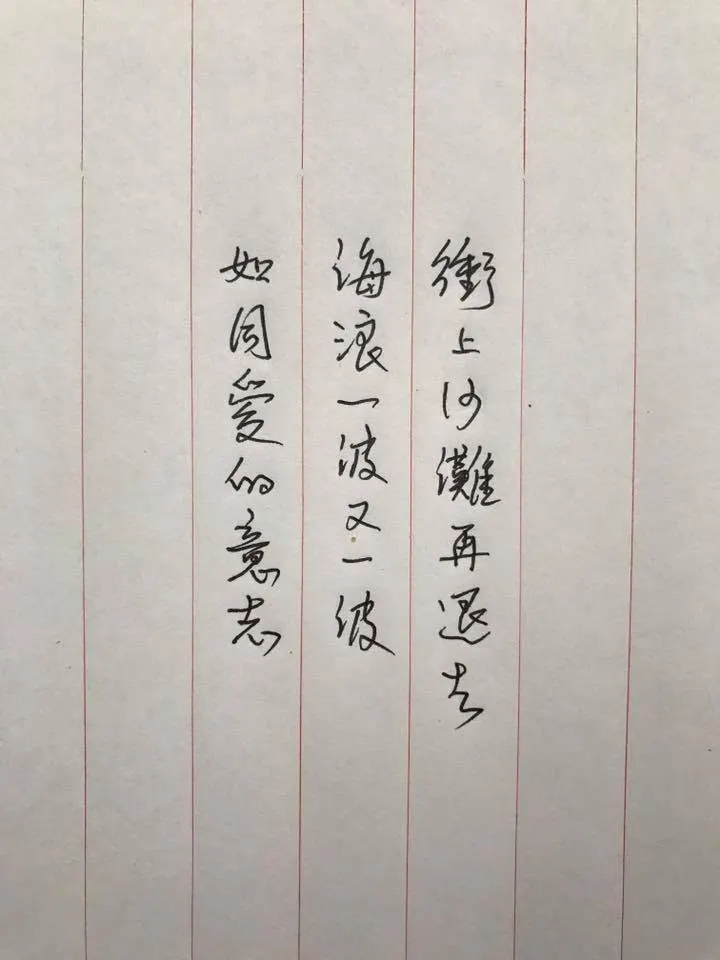 衝上沙灘再退去
海浪一波又一波
如同愛的意志